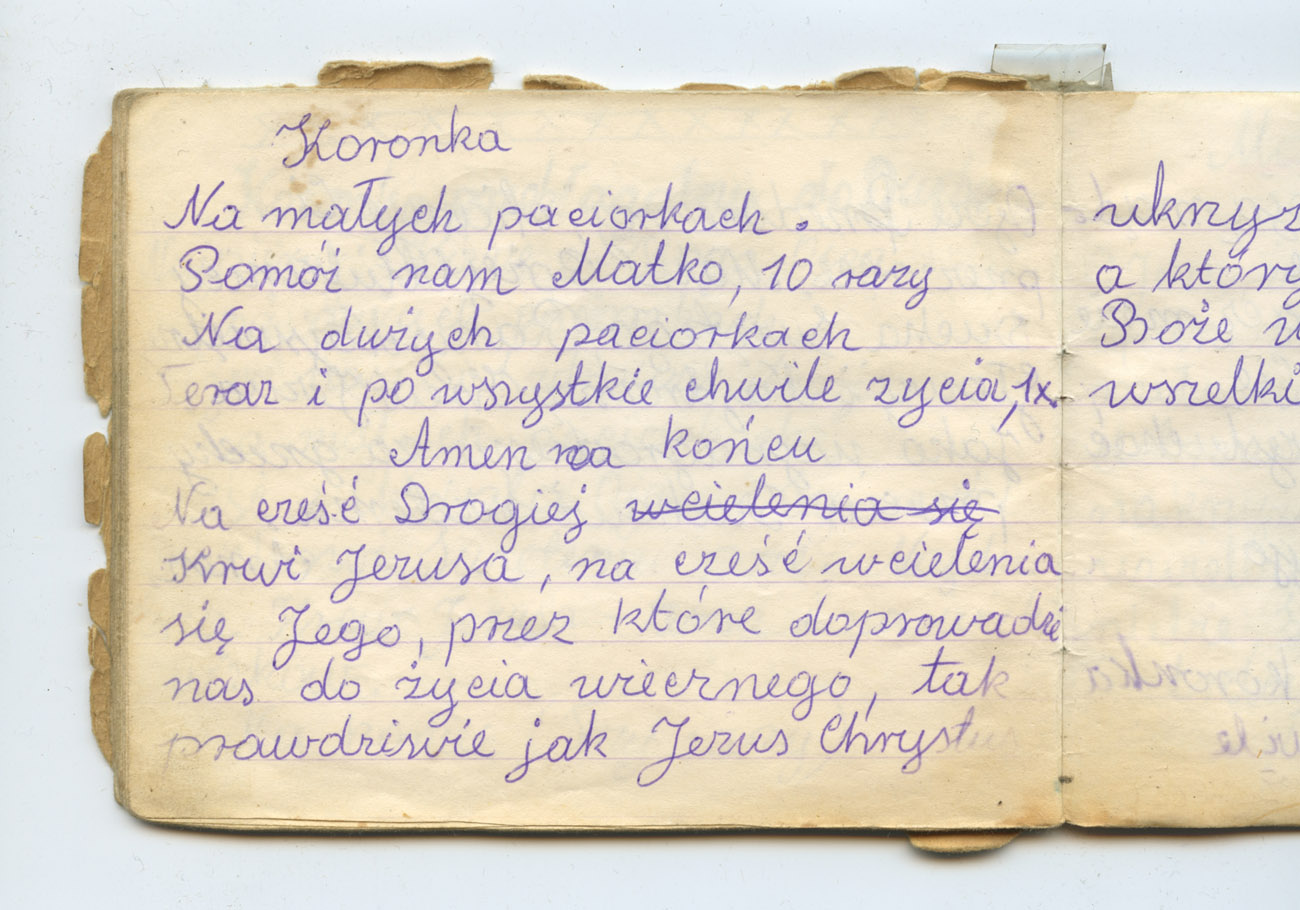 Koronka
Na małych paciorkach.
Pomóż nam Matko, 10 razy
Na dużych paciorkach
Teraz i po wszystkie chwile życia, 1x.
Amen na końcu
Na cześć Drogiej wcielenia się
Krwi Jezusa, na cześć wcielenia
się Jego, przez które doprowadzi
nas do życia wiecznego, tak
prawdziwie jak Jezus Chrystus
a
Boże